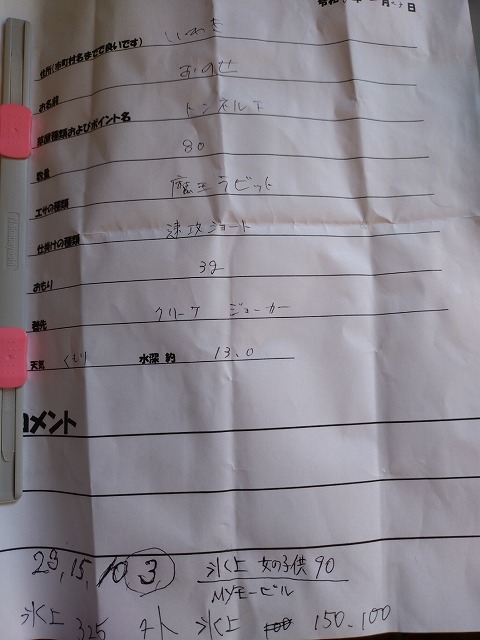 住所(市町村名までで良いです) いわき
お名前 おのせ
部屋種類およびポイント名 トンネル下
数量 80
エサの種類 魔王ラビット
仕掛けの種類 速攻ショート
おもり 3g
穂先 クリーク ジョーカー
天気 くもり 水深 約 13.0
コメント
氷上 女の子供 90
MYモービル
氷上 325 4人 氷上 150-100